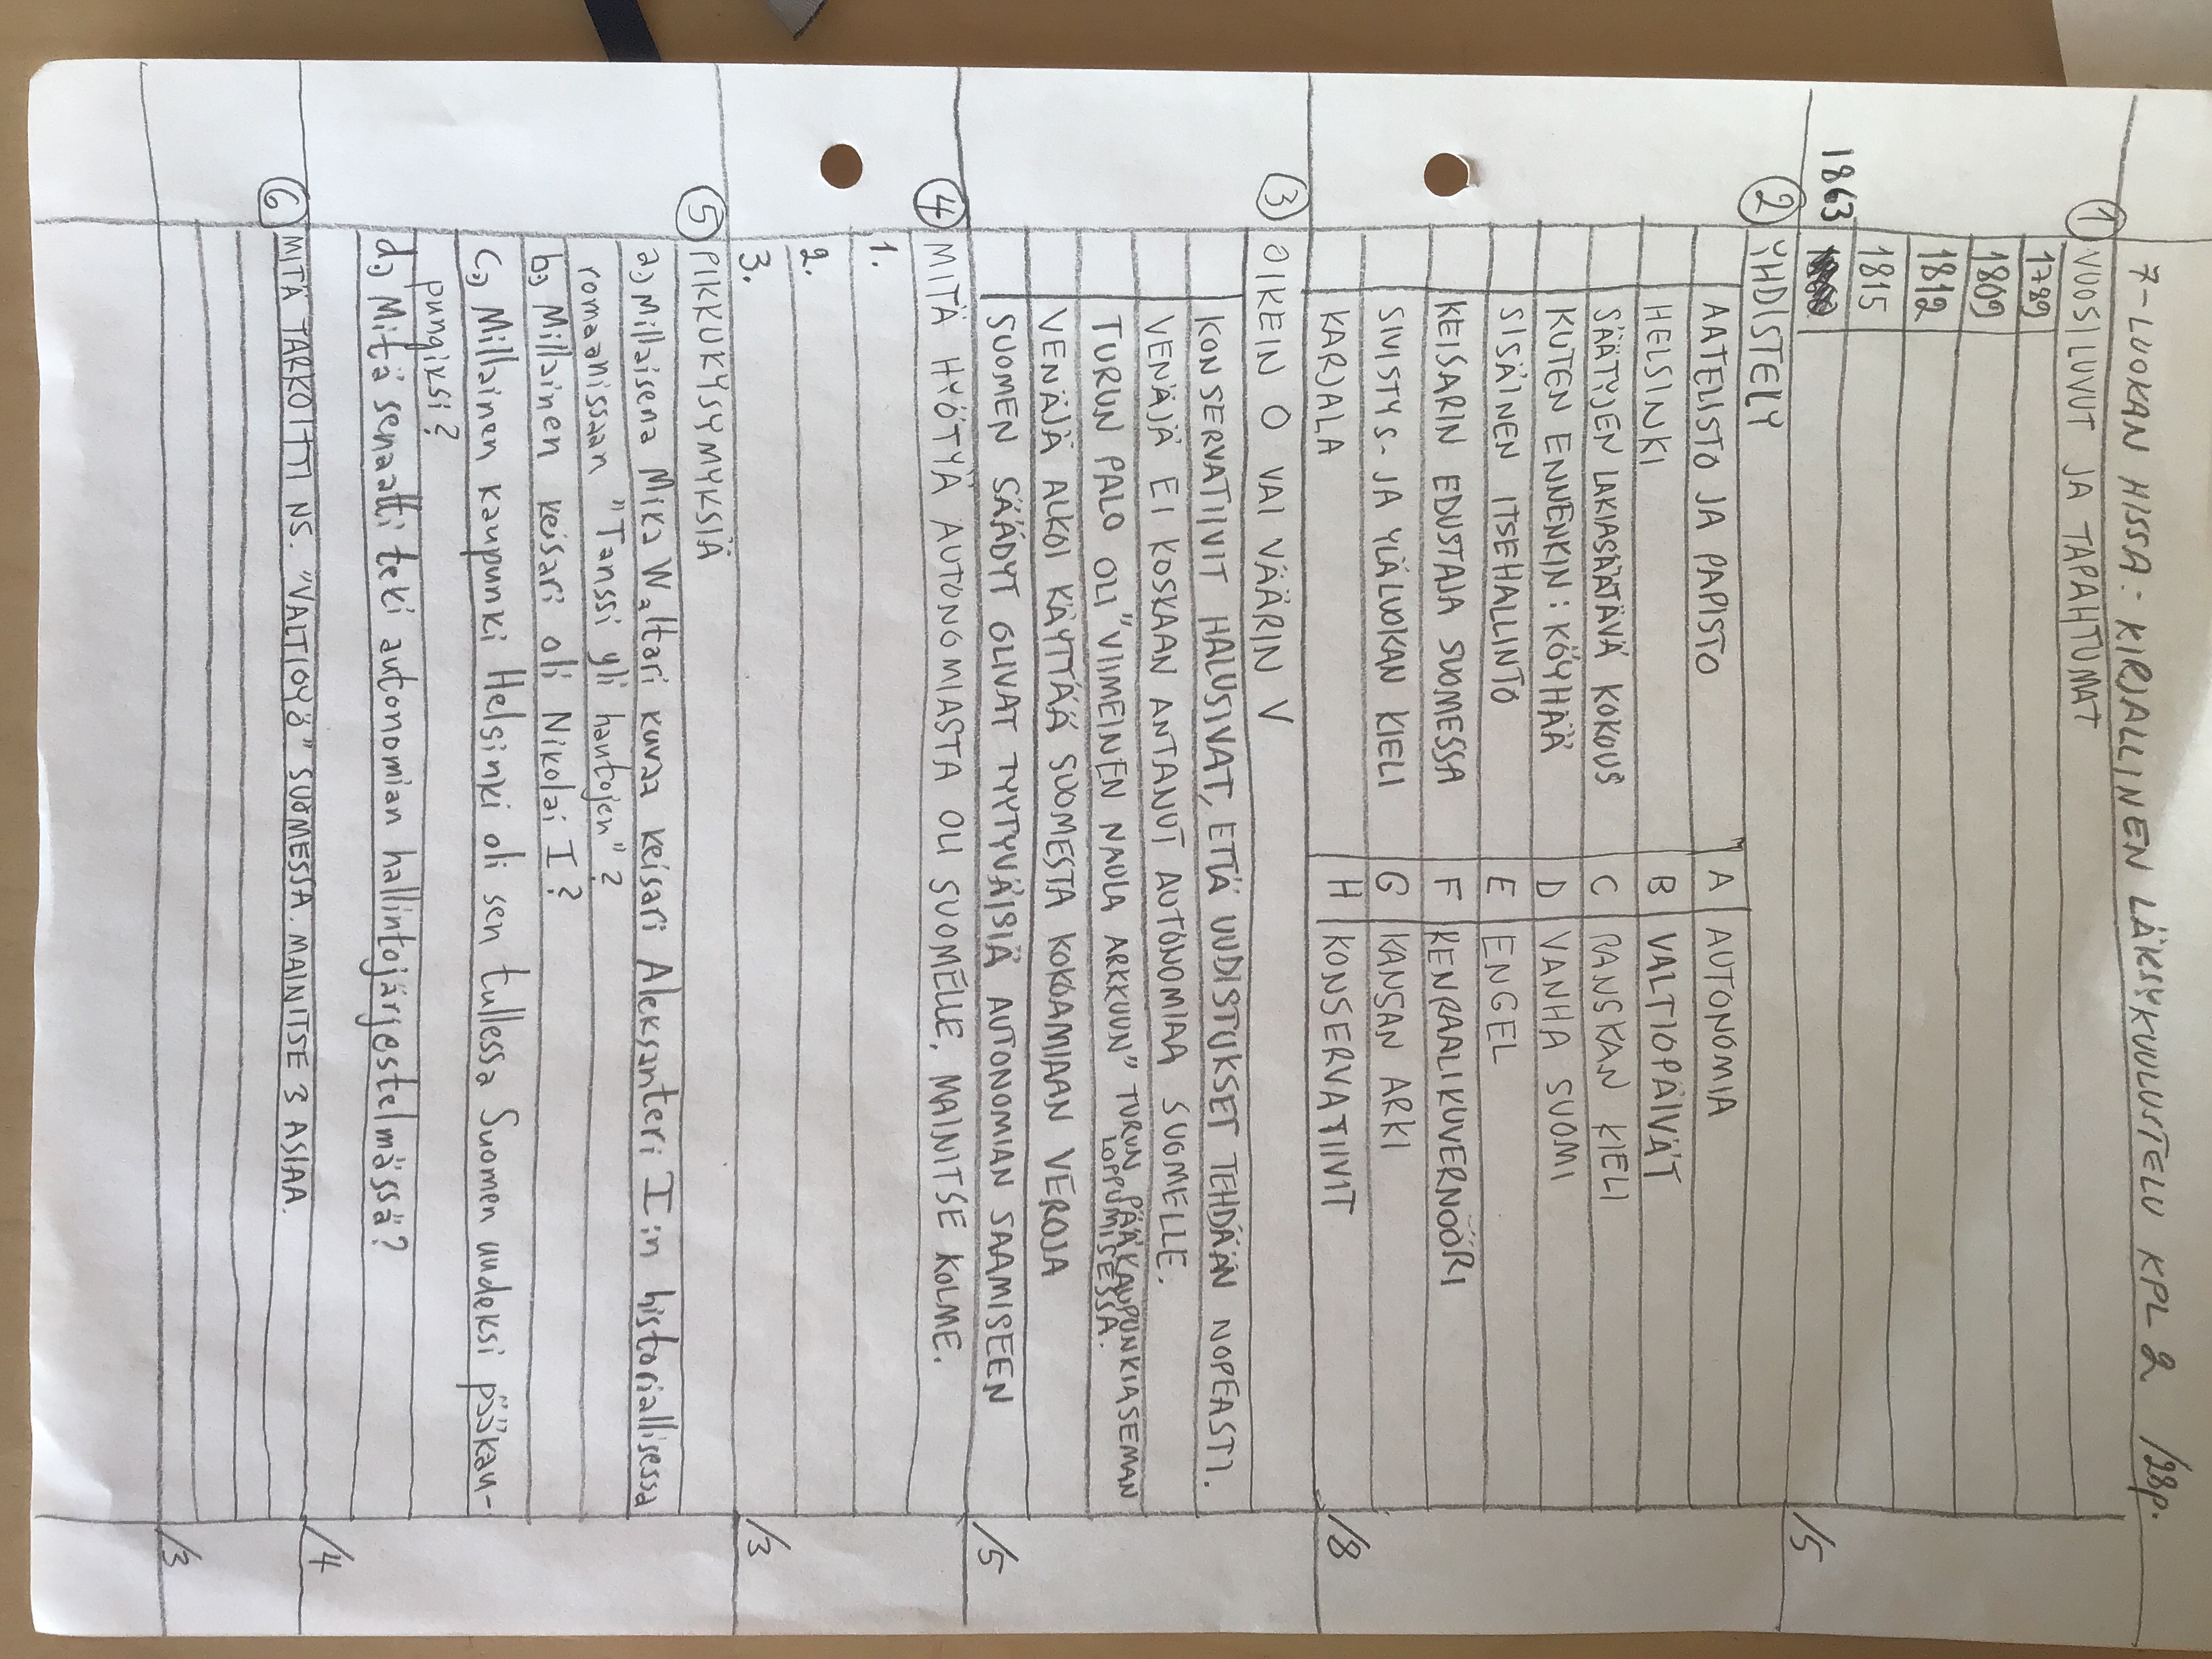 7-LUOKAN HISSA: KIRJALLINEN LÄKSYKUULUSTELU KPL 2 /28p.
① VUOSILUVUT JA TAPAHTUMAT
1789
1809
1812
1815
1863
/5
② YHDISTELY
AATELISTO JA PAPISTO A AUTONOMIA
HELSINKI B VALTIOPÄIVÄT
SÄÄTYJEN LAKIASÄÄTÄVÄ KOKOUS C RANSKAN KIELI
KUTEN ENNENKIN: KÖYHÄÄ D VANHA SUOMI
SISÄINEN ITSEHALLINTO E ENGEL
KEISARIN EDUSTAJA SUOMESSA F KENRAALIKUVERNÖÖRI
SIVISTYS- JA YLÄLUOKAN KIELI G KANSAN ARKI
KARJALA H KONSERVATIIVIT
/8
③ OIKEIN O VAI VÄÄRIN V
KONSERVATIIVIT HALUSIVAT, ETTÄ UUDISTUKSET TEHDÄÄN NOPEASTI.
VENÄJÄ EI KOSKAAN ANTANUT AUTONOMIAA SUOMELLE.
TURUN PALO OLI "VIIMEINEN NAULA ARKKUUN" TURUN PÄÄKAUPUNKIASEMAN
LOPPUMISESSA.
VENÄJÄ ALKOI KÄYTTÄÄ SUOMESTA KOKOAMIAAN VEROJA
SUOMEN SÄÄDYT OLIVAT TYYTYVÄISIÄ AUTONOMIAN SAAMISEEN
/5
④ MITÄ HYÖTYÄ AUTONOMIASTA OLI SUOMELLE, MAINITSE KOLME.
1.
2.
3.
/3
⑤ PIKKUKYSYMYKSIÄ
a) Millaisena Mika Waltari kuvaa keisari Aleksanteri I in historiallisessa
romaanissaan "Tanssi yli hautojen"?
b) Millainen keisari oli Nikolai I?
c) Millainen kaupunki Helsinki oli sen tullessa Suomen uudeksi pääkau-
pungiksi?
d) Mitä senaatti teki autonomian hallintojärjestelmässä?
/4
⑥ MITÄ TARKOITTI NS. "VALTIOYÖ" SUOMESSA. MAINITSE 3 ASIAA.
/3